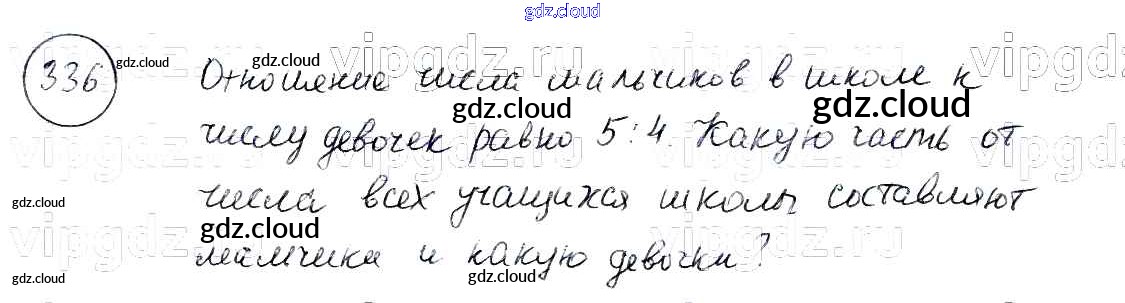 gdz.cloud
336 gdz.cloud gdz.cloud
vipgdz.ru vipgdz.ru vipgdz.ru
Отношение числа мальчиков в школе к
gdz.cloud gdz.cloud
числу девочек равно 5:4. Какую часть от
vipgdz.ru vipgdz.ru vipgdz.ru
числа всех учащихся школы составляют
gdz.cloud
gdz.cloud
vipgdz.ru vipgdz.ru vipgdz.ru
мальчики и какую девочки?
gdz.cloud gdz.cloud